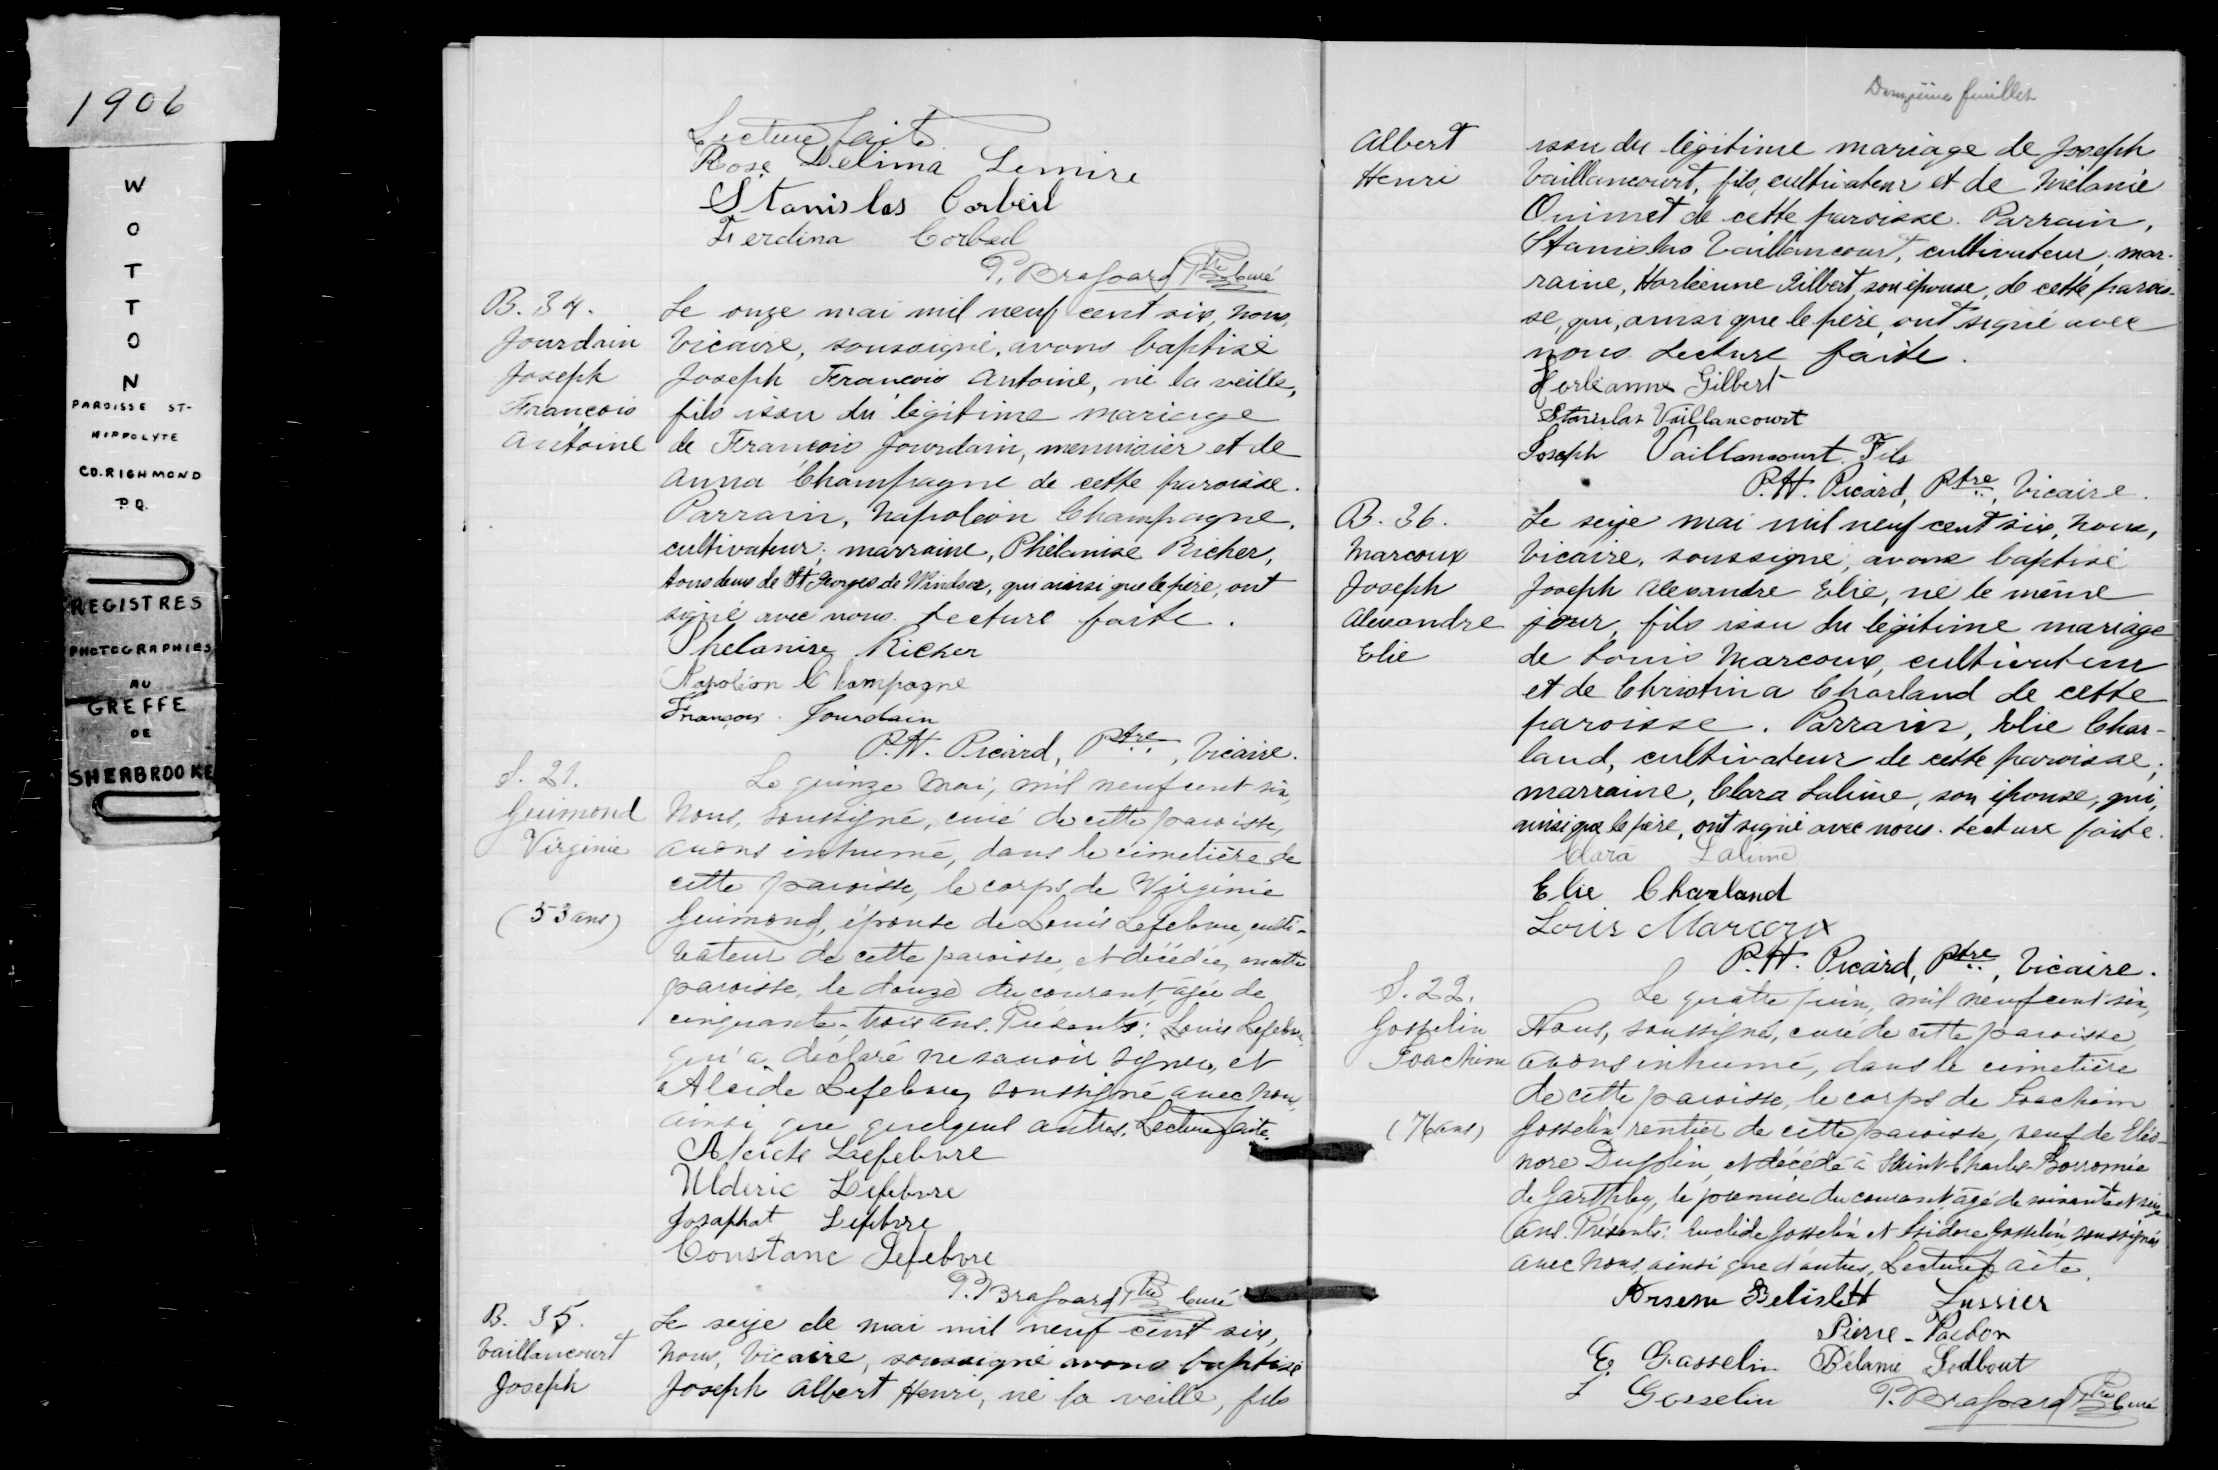 1906
WOTTON
PAROISSE ST-
HIPPOLYTE
CO. RICHMOND
P.Q.
REGISTRES
PHOTOGRAPHIES
AU
GREFFE
DE
SHERBROOKE
Lecture faite
Rose Delima Lemire
Stanislas Corbeil
Ferdina Corbeil
P. Brassard Ptre Curé
B. 34.
Jourdain
Joseph
François
Antoine
Le onze mai mil neuf cent six, nous,
Vicaire, soussigné, avons baptisé
Joseph François Antoine, né la veille,
fils issu du légitime mariage
de François Jourdain, menuisier et de
Anna Champagne de cette paroisse.
Parrain, Napoléon Champagne,
cultivateur; marraine, Phélanise Richer,
tous deux de St Georges de Windsor, qui ainsi que le père, ont
signé avec nous. Lecture faite.
Phelanise Richer
Napoléon Champagne
François Jourdain
P.H. Picard, Ptre, Vicaire.
S. 21.
Guimond
Virginie
(53 ans)
Le quinze Mai, mil neuf cent six,
Nous, soussigné, curé de cette paroisse,
avons inhumé, dans le cimetière de
cette paroisse, le corps de Virginie
Guimond, épouse de Louis Lefebvre, culti-
vateur de cette paroisse, et décédée, en cette
paroisse, le douze du courant, âgée de
cinquante-trois ans. Présents: Louis Lefebvre
qui a déclaré ne savoir signer, et
Alcide Lefebvre, soussigné avec nous,
ainsi que quelques autres. Lecture faite.
Alcide Lefebvre
Ulderic Lefebvre
Josaphat Lefebvre
Constanc Lefebvre
P. Brassard Ptre Curé
B. 35.
Vaillancourt
Joseph
Le seize de mai mil neuf cent six,
Nous, Vicaire, soussigné avons baptisé
Joseph Albert Henri, né la veille, fils
feuillet
Albert
Henri
issu du légitime mariage de Joseph
Vaillancourt, fils, cultivateur et de Mélanie
Ouimet de cette paroisse. Parrain,
Stanislas Vaillancourt, cultivateur, mar-
raine, Horléenne Gilbert, son épouse, de cette parois-
se, qui, ainsi que le père, ont signé avec
nous. Lecture faite.
Horléanne Gilbert
Stanislas Vaillancourt
Joseph Vaillancourt Fils
P.H. Picard, Ptre, Vicaire.
B. 36.
Marcoux
Joseph
Alexandre
Elie
Le seize mai mil neuf cent six, nous,
Vicaire, soussigné, avons baptisé
Joseph Alexandre Elie, né le même
jour, fils issu du légitime mariage
de Louis Marcoux, cultivateur
et de Christina Charland de cette
paroisse. Parrain, Elie Char-
land, cultivateur de cette paroisse;
marraine, Clara Salime, son épouse, qui,
ainsi que le père, ont signé avec nous. Lecture faite.
Clara
Elie Charland
Louis Marcoux
P.H. Picard, Ptre, Vicaire.
S. 22.
Gosselin
Joachim
(76 ans)
Le quatre juin, mil neuf cent six,
Nous, soussigné, curé de cette paroisse,
avons inhumé, dans le cimetière
de cette paroisse, le corps de Joachim
Gosselin rentier de cette paroisse, veuf de Eléo-
nore, et décédé à Saint-Charles-Borromée
de Garthby, le premier du courant, âgé de soixante et seize
ans. Présents: Euclide Gosselin et Isidore Gosselin, soussignés
avec nous, ainsi que d'autres. Lecture faite.
Arsene Belisle H Lussier
Pierre
E Gosselin Ledbout
I Gosselin P. Brassard Ptre Curé